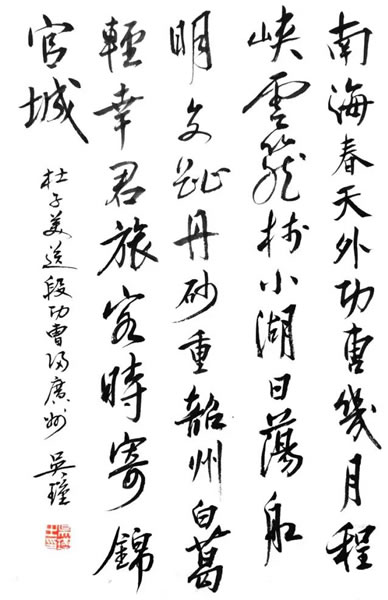 南海春天外功曹幾月程
峽雲籠樹小湖日蕩船
明交趾丹砂重韶州白葛
輕幸君旅客時寄錦
官城
杜子美送段功曹歸廣州 吳